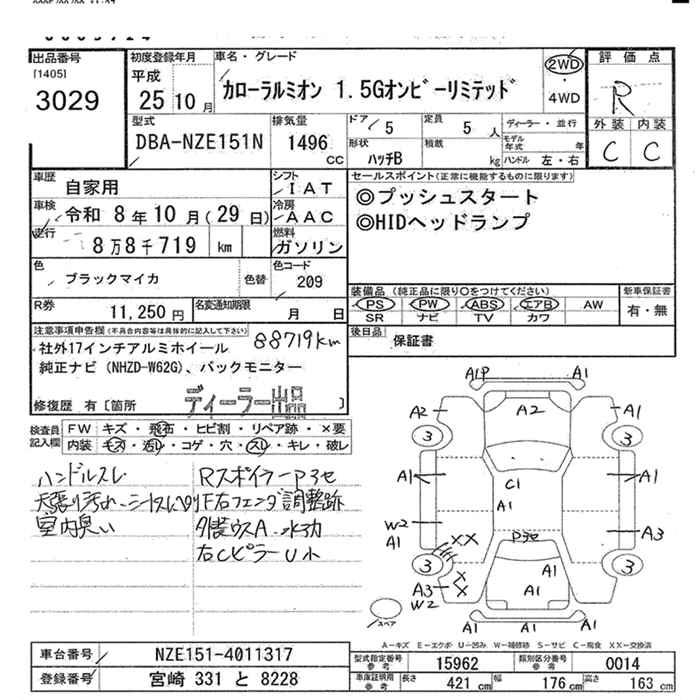 出品番号
[1405]
3029
初度登録年月
平成
25年10月
車名・グレード
カローラルミオン 1.5Gオンビーリミテッド
2WD
・
4WD
評価点
R
外装 内装
C C
型式
DBA-NZE151N
排気量
1496
cc
ドア
5
形状
ハッチB
定員
5 人
積載
kg
ディーラー・並行
モデル年式 年
ハンドル 左・右
車歴
自家用
車検
令和 8年10月(29日)
走行
8万8千719 km
シフト
IAT
冷房
AAC
燃料
ガソリン
色
ブラックマイカ
色替
色コード
209
R券
11,250円
名変通知期限
月 日
セールスポイント(正常に機能するものに限ります)
◎プッシュスタート
◎HIDヘッドランプ
装備品 (純正品に限り○をつけてください)
PS PW ABS エアB AW
SR ナビ TV カワ
新車保証書
有・無
後日品
保証書
注意事項申告欄(不具合内容等は具体的に記入して下さい)
88719km
社外17インチアルミホイール
純正ナビ (NHZD-W62G)、バックモニター
ディーラー出品
修復歴 有[箇所 ]
検査員記入欄
FW キズ・飛石・ヒビ割・リペア跡・×要
内装 キズ・汚レ・コゲ・穴・スレ・キレ・破レ
ハンドルスレ
天張り汚れ・シートスレ・ヘタリ
室内臭い
Rスポイラー P3セ
F右フェンダ調整跡
外装ウスA・小凹
右CピラーU小
A1P A1
A2 A2 A1
3 3
A1 C1 A1
A1
W2 A1
XX
P3セ
A3
3 3
X
X
A3
W2
A1
A1
A1 A1 A1
スペア
A-キズ E-エクボ U-凹み W-補修跡 S-サビ C-腐食 XX-交換済
車台番号 NZE151-4011317
登録番号 宮崎 331 と 8228
型式指定番号 参考 15962
類別区分番号 参考 0014
車庫証明用 参考 長さ 421 cm 幅 176 cm 高さ 163 cm